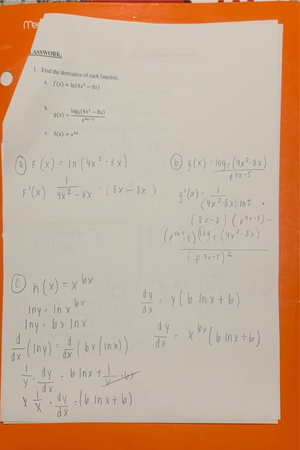 CLASSWORK:
1. Find the derivative of each function.
a. f(x) = ln(4x² − 8x)
b. g(x) = log₅(4x² − 8x) / e^(4x−5)
c. h(x) = x^(6x)
(a) F(x) = ln(4x² - 8x)
F'(x) 1/(4x² - 8x) · (8x - 8x)
(b) g(x) · log₅(4x² - 8x) / e^(4x-5)
g'(x) = 1/((4x² - 8x) ln5) ·
(8x-8)(e^(4x-5)) -
(e^(4x-5)·4)(log₅(4x² - 8x)
(e^(4x-5))²
(c) h(x) = x^(6x)
lny = ln x^(6x)
lny = 6x lnx
d/dx (lny) = d/dx (6x(lnx))
1/y · dy/dx = 6 lnx + 1/x · 6x
y 1/y · dy/dx = (6 lnx + 6)
dy/dx = y(6 lnx + 6)
dy/dx = x^(6x) (6 lnx + 6)